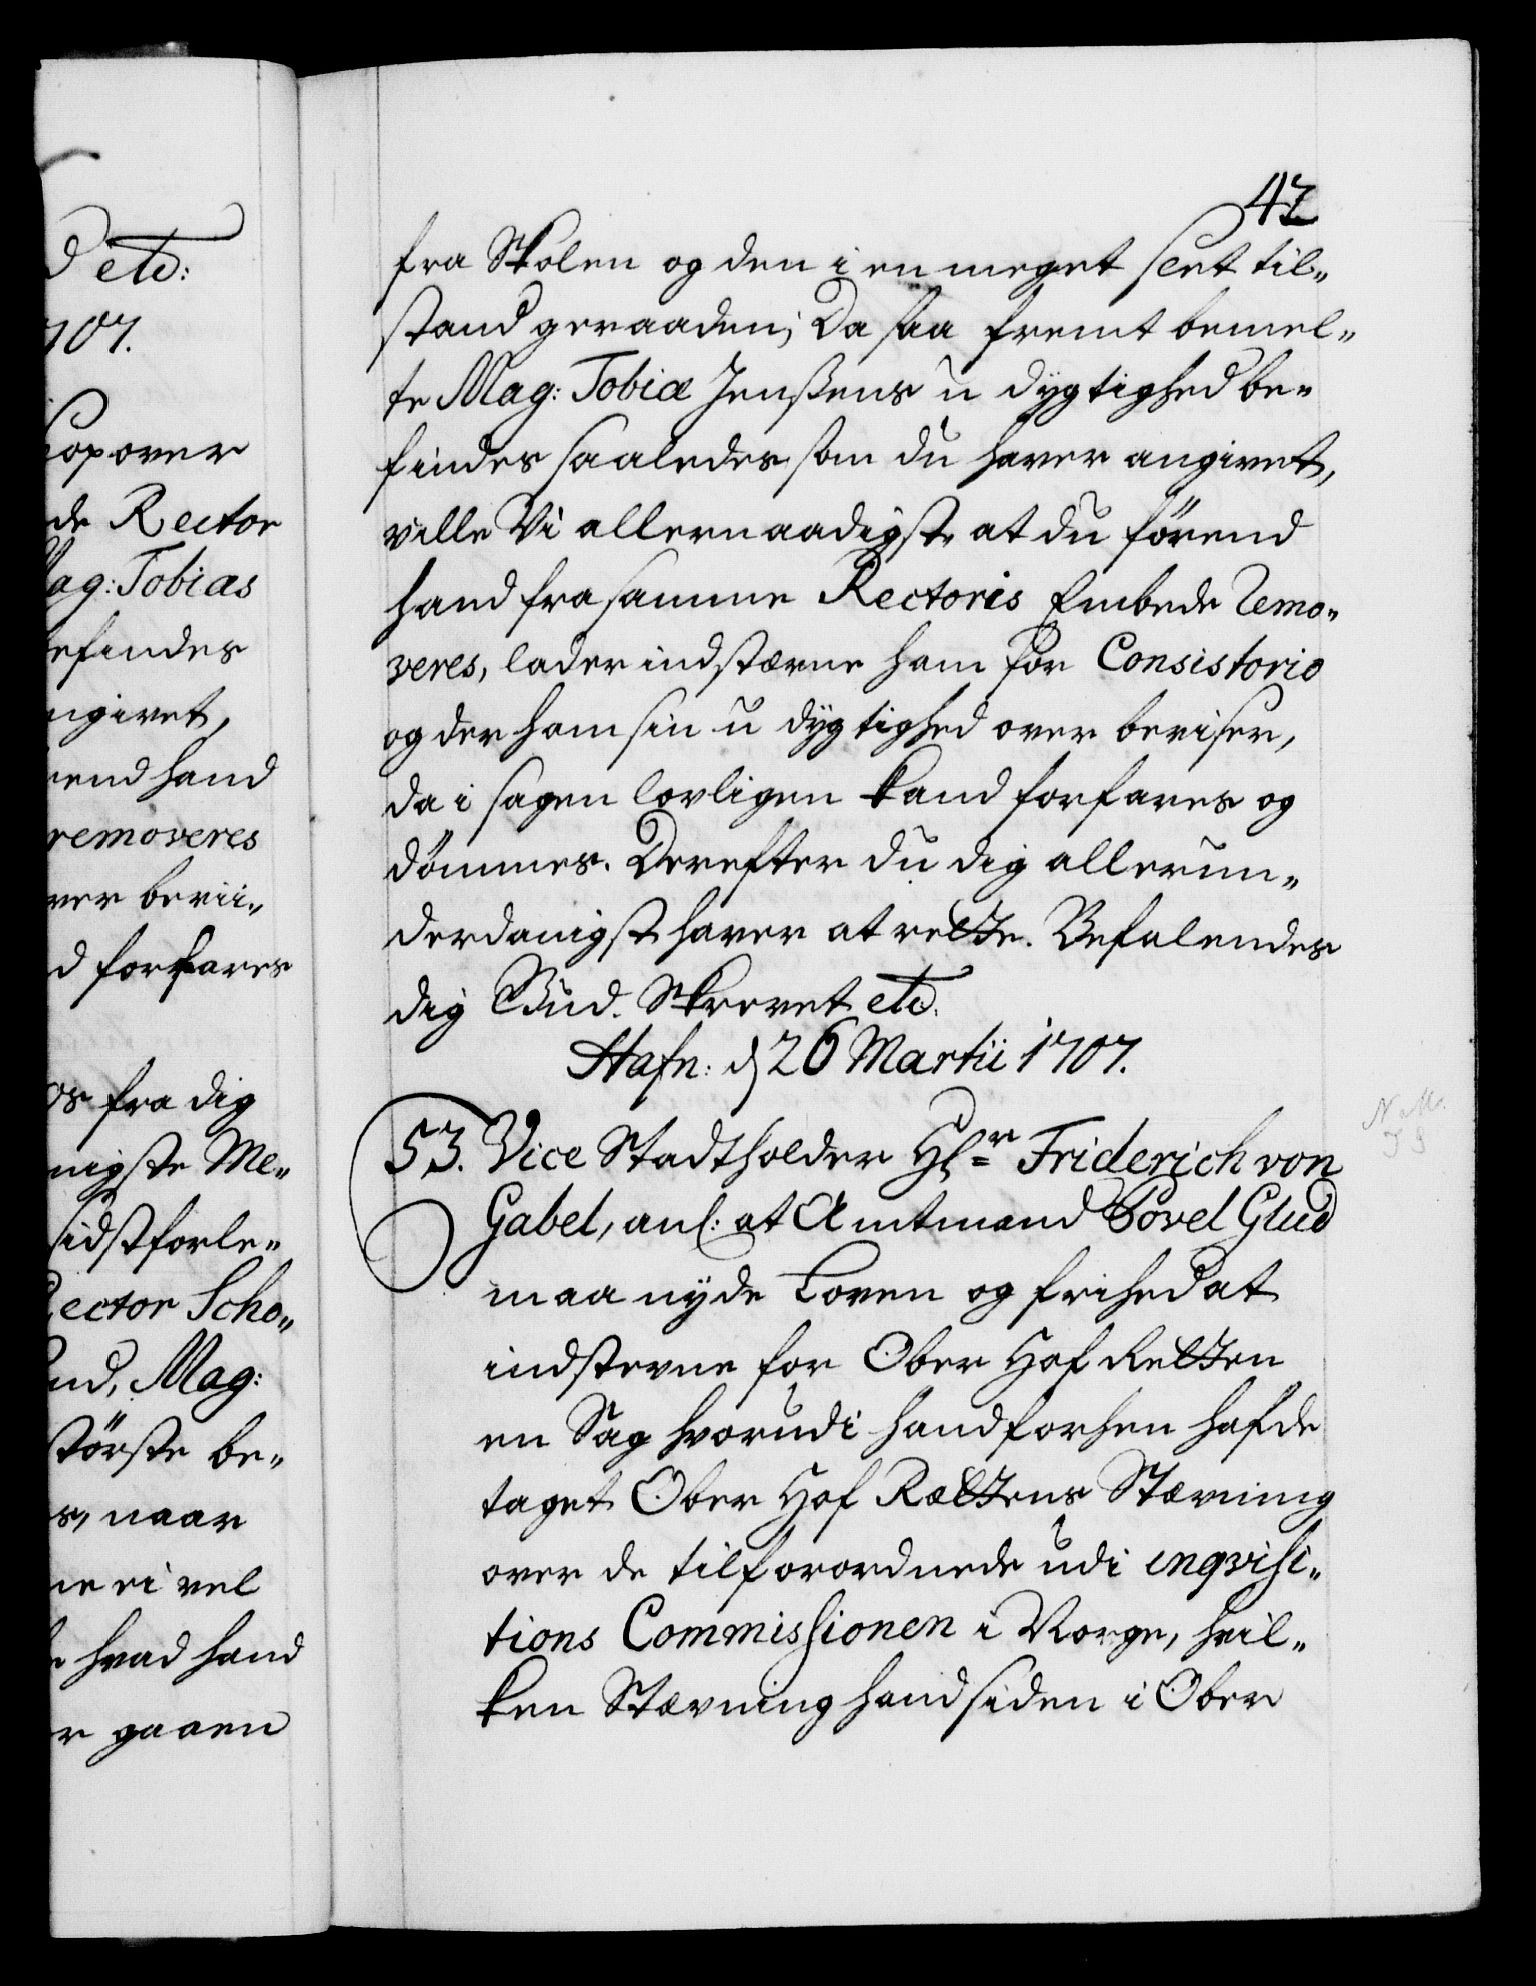 d etc:
707.
op over
de Rector
ag: Tobias
efindes
ngivet,
end hand
removeres
ver bevii-
d forfares
os fra dig
nigste Me-
sidstforle-
Rector Scho-
und, Mag:
största be-
s, naar
ne ei vel
hvad hand
r gaaen
42
fra Skolen og den i en meget slet til-
stand geraaden; Da saa fremt bemel-
te Mag: Tobiæ Jenssens u dygtighed be-
findes saaledes som du haver angivet,
ville Vi allernaadigst at du förend
hand fra samme Rectoris Embede remo-
veres, lader indstævne ham for Consistorio
og der ham sin u dygtighed over beviser,
da i sagen lovligen kand forfares og
dömmes. Derefter du dig allerun-
derdanigst haver at rette. Befalendes
dig Gud. Skrevet etc.
Hafn: d 26 Martii 1707.
53. Vice Stadtholder Hr Friderich von
Gabel, anl: at Amtmand Povel Glud
maa nyde Loven og frihed at
indstevne for Ober Hof Retten
en Sag hvorudi hand forhen hafde
taget Ober Hof Rættens Stævning
over de tilforordnede udi inqvisi-
tions Commissionen i Norge, hvil-
ken Stævning hand siden i Ober